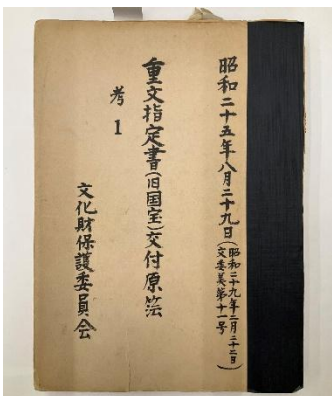 昭和二十五年八月二十九日(昭和二十九年二月二十二日
文委美第十一号)
重文指定書(旧国宝)交付原簿
考1
文化財保護委員会